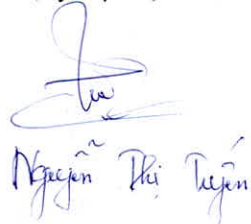 Nguyễn Thị Tuyến